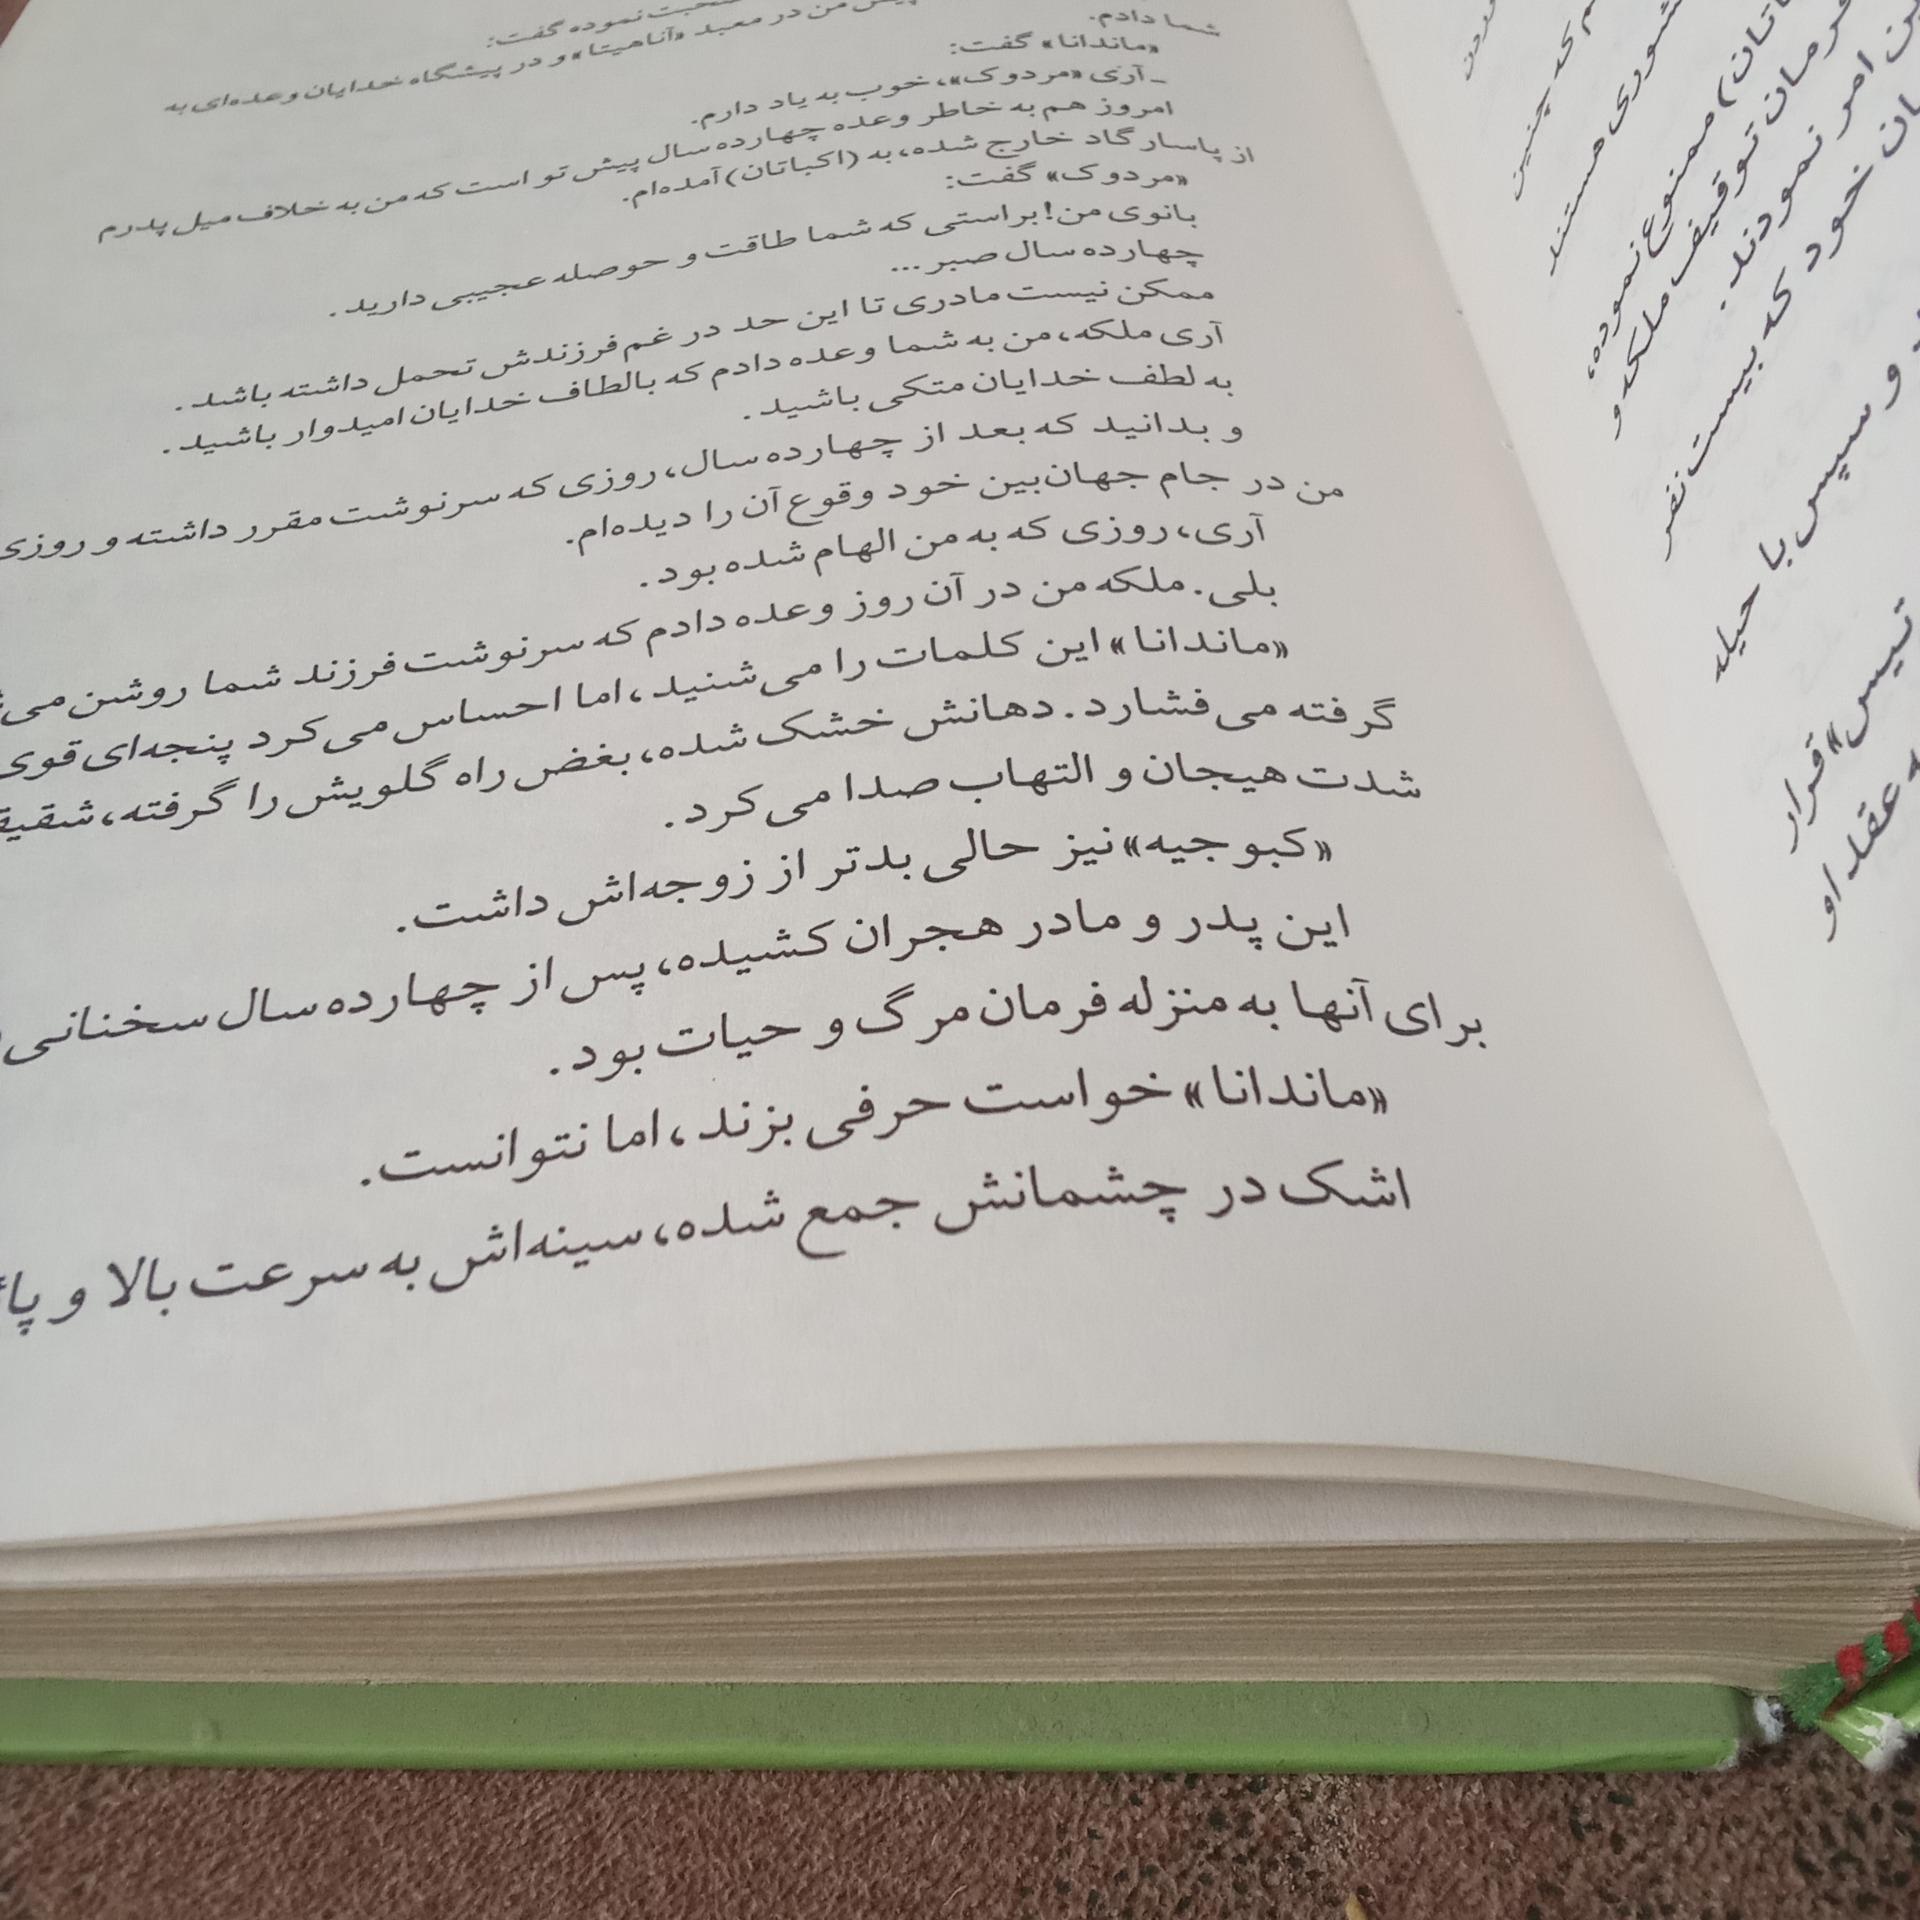 صحبت نموده گفت:
پیش من در معبد «آناهیتا» و در پیشگاه خدایان وعده‌ای به
شما دادم.
«ماندانا» گفت:
ـ آری «مردوک»، خوب به یاد دارم.
امروز هم به خاطر وعده چهارده سال پیش تو است که من به خلاف میل پدرم
از پاسارگاد خارج شده، به (اکباتان) آمده‌ام.
«مردوک» گفت:
بانوی من! براستی که شما طاقت و حوصله عجیبی دارید.
چهارده سال صبر...
ممکن نیست مادری تا این حد در غم فرزندش تحمل داشته باشد.
آری ملکه، من به شما وعده دادم که بالطاف خدایان امیدوار باشید.
به لطف خدایان متکی باشید.
و بدانید که بعد از چهارده سال، روزی که سرنوشت مقرر داشته و روزی
من در جام جهان‌بین خود وقوع آن را دیده‌ام.
آری، روزی که به من الهام شده بود.
بلی. ملکه من در آن روز وعده دادم که سرنوشت فرزند شما روشن
«ماندانا» این کلمات را می‌شنید، اما احساس می‌کرد پنجه‌ای قوی
گرفته می‌فشارد. دهانش خشک شده، بغض راه گلویش را گرفته،
شدت هیجان و التهاب صدا می‌کرد.
«کبوجیه» نیز حالی بدتر از زوجه‌اش داشت.
این پدر و مادر هجران کشیده، پس از چهارده سال سخنانی
برای آنها به منزله فرمان مرگ و حیات بود.
«ماندانا» خواست حرفی بزند، اما نتوانست.
اشک در چشمانش جمع شده، سینه‌اش به سرعت بالا و
که چنین
هستند
ممنوع نموده،
فرمان توقیف ملکه و
امر نمودند.
خود که بیست نفر
و سپس با حیله
قرار
عقد او